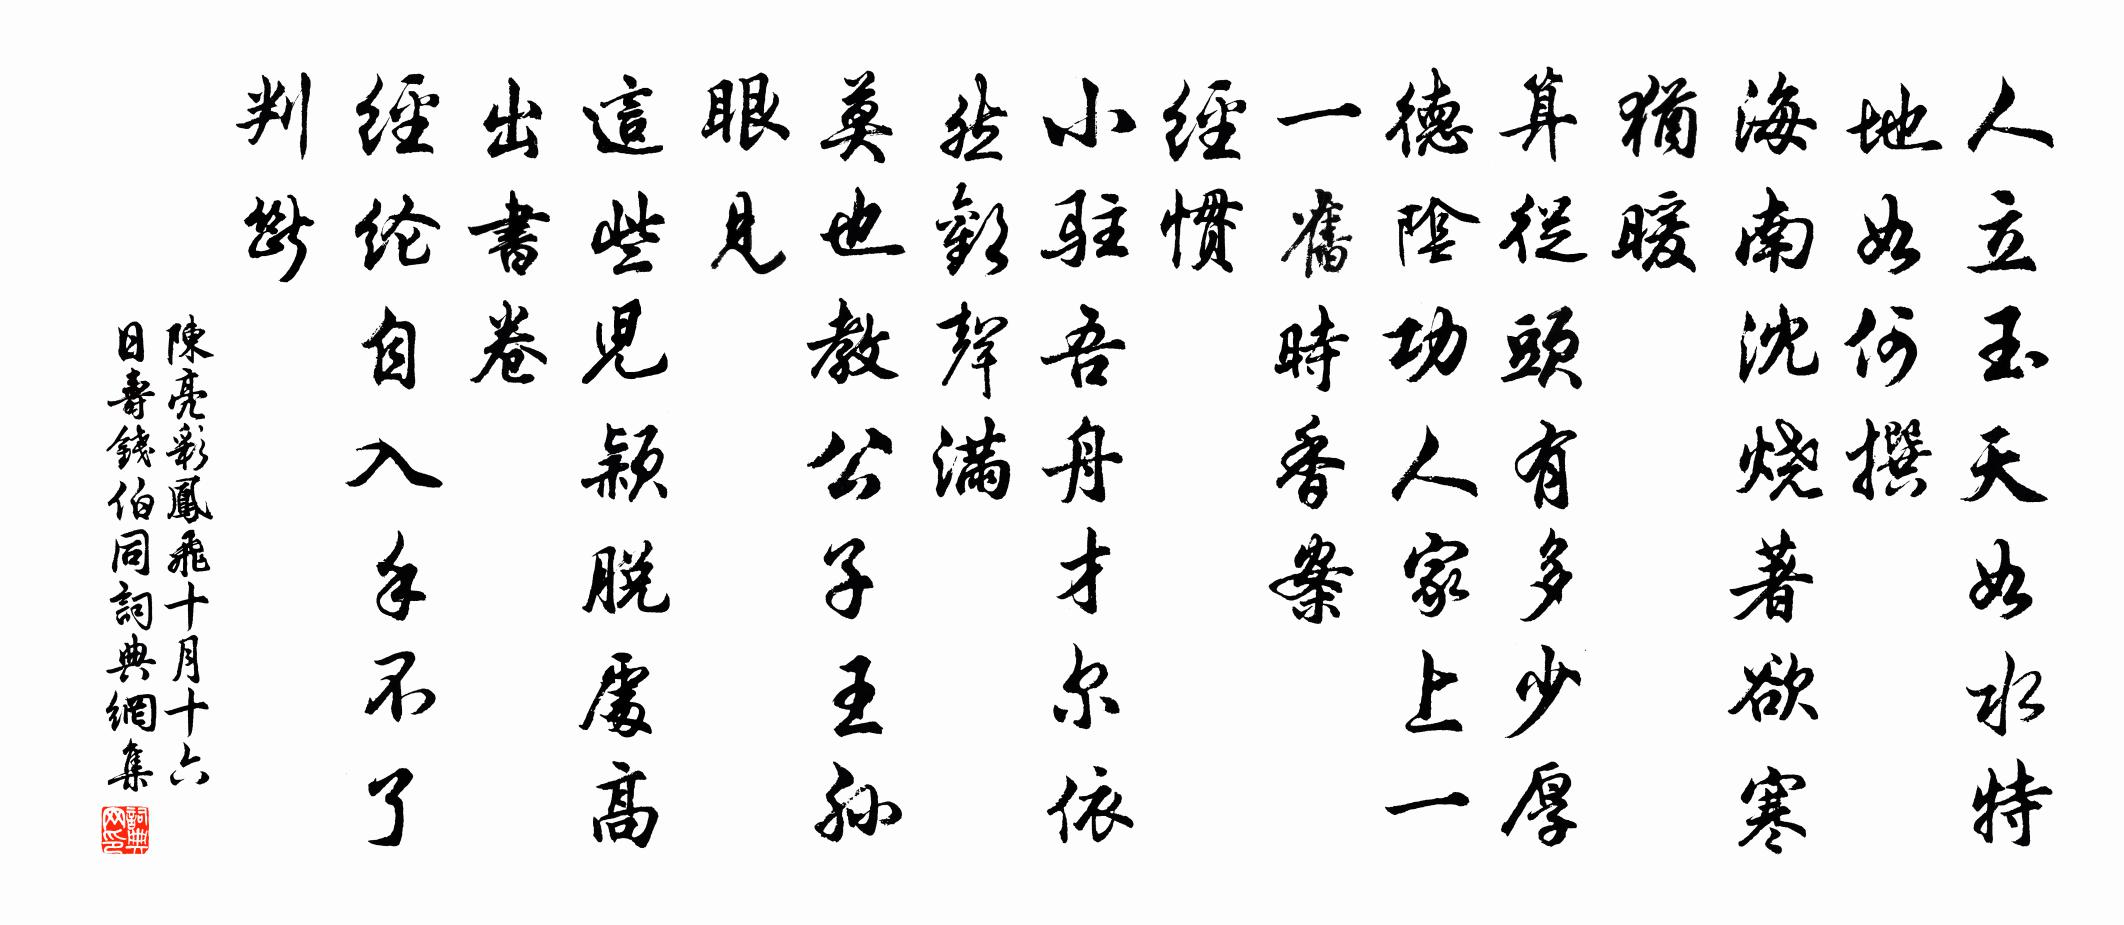 人立玉天如水特
地如何撰
海南沈燒著欲寒
猶暖
算從頭有多少厚
德陰功人家上一
一舊時香案
經慣
小駐吾舟才尔依
然歡聲滿
莫也教公子王孫
眼見
這些兒穎脫處高
出書卷
經綸自入手不了
判斷
陳亮彩鳳飛十月十六
日壽錢伯同詞典網集
詞典網印